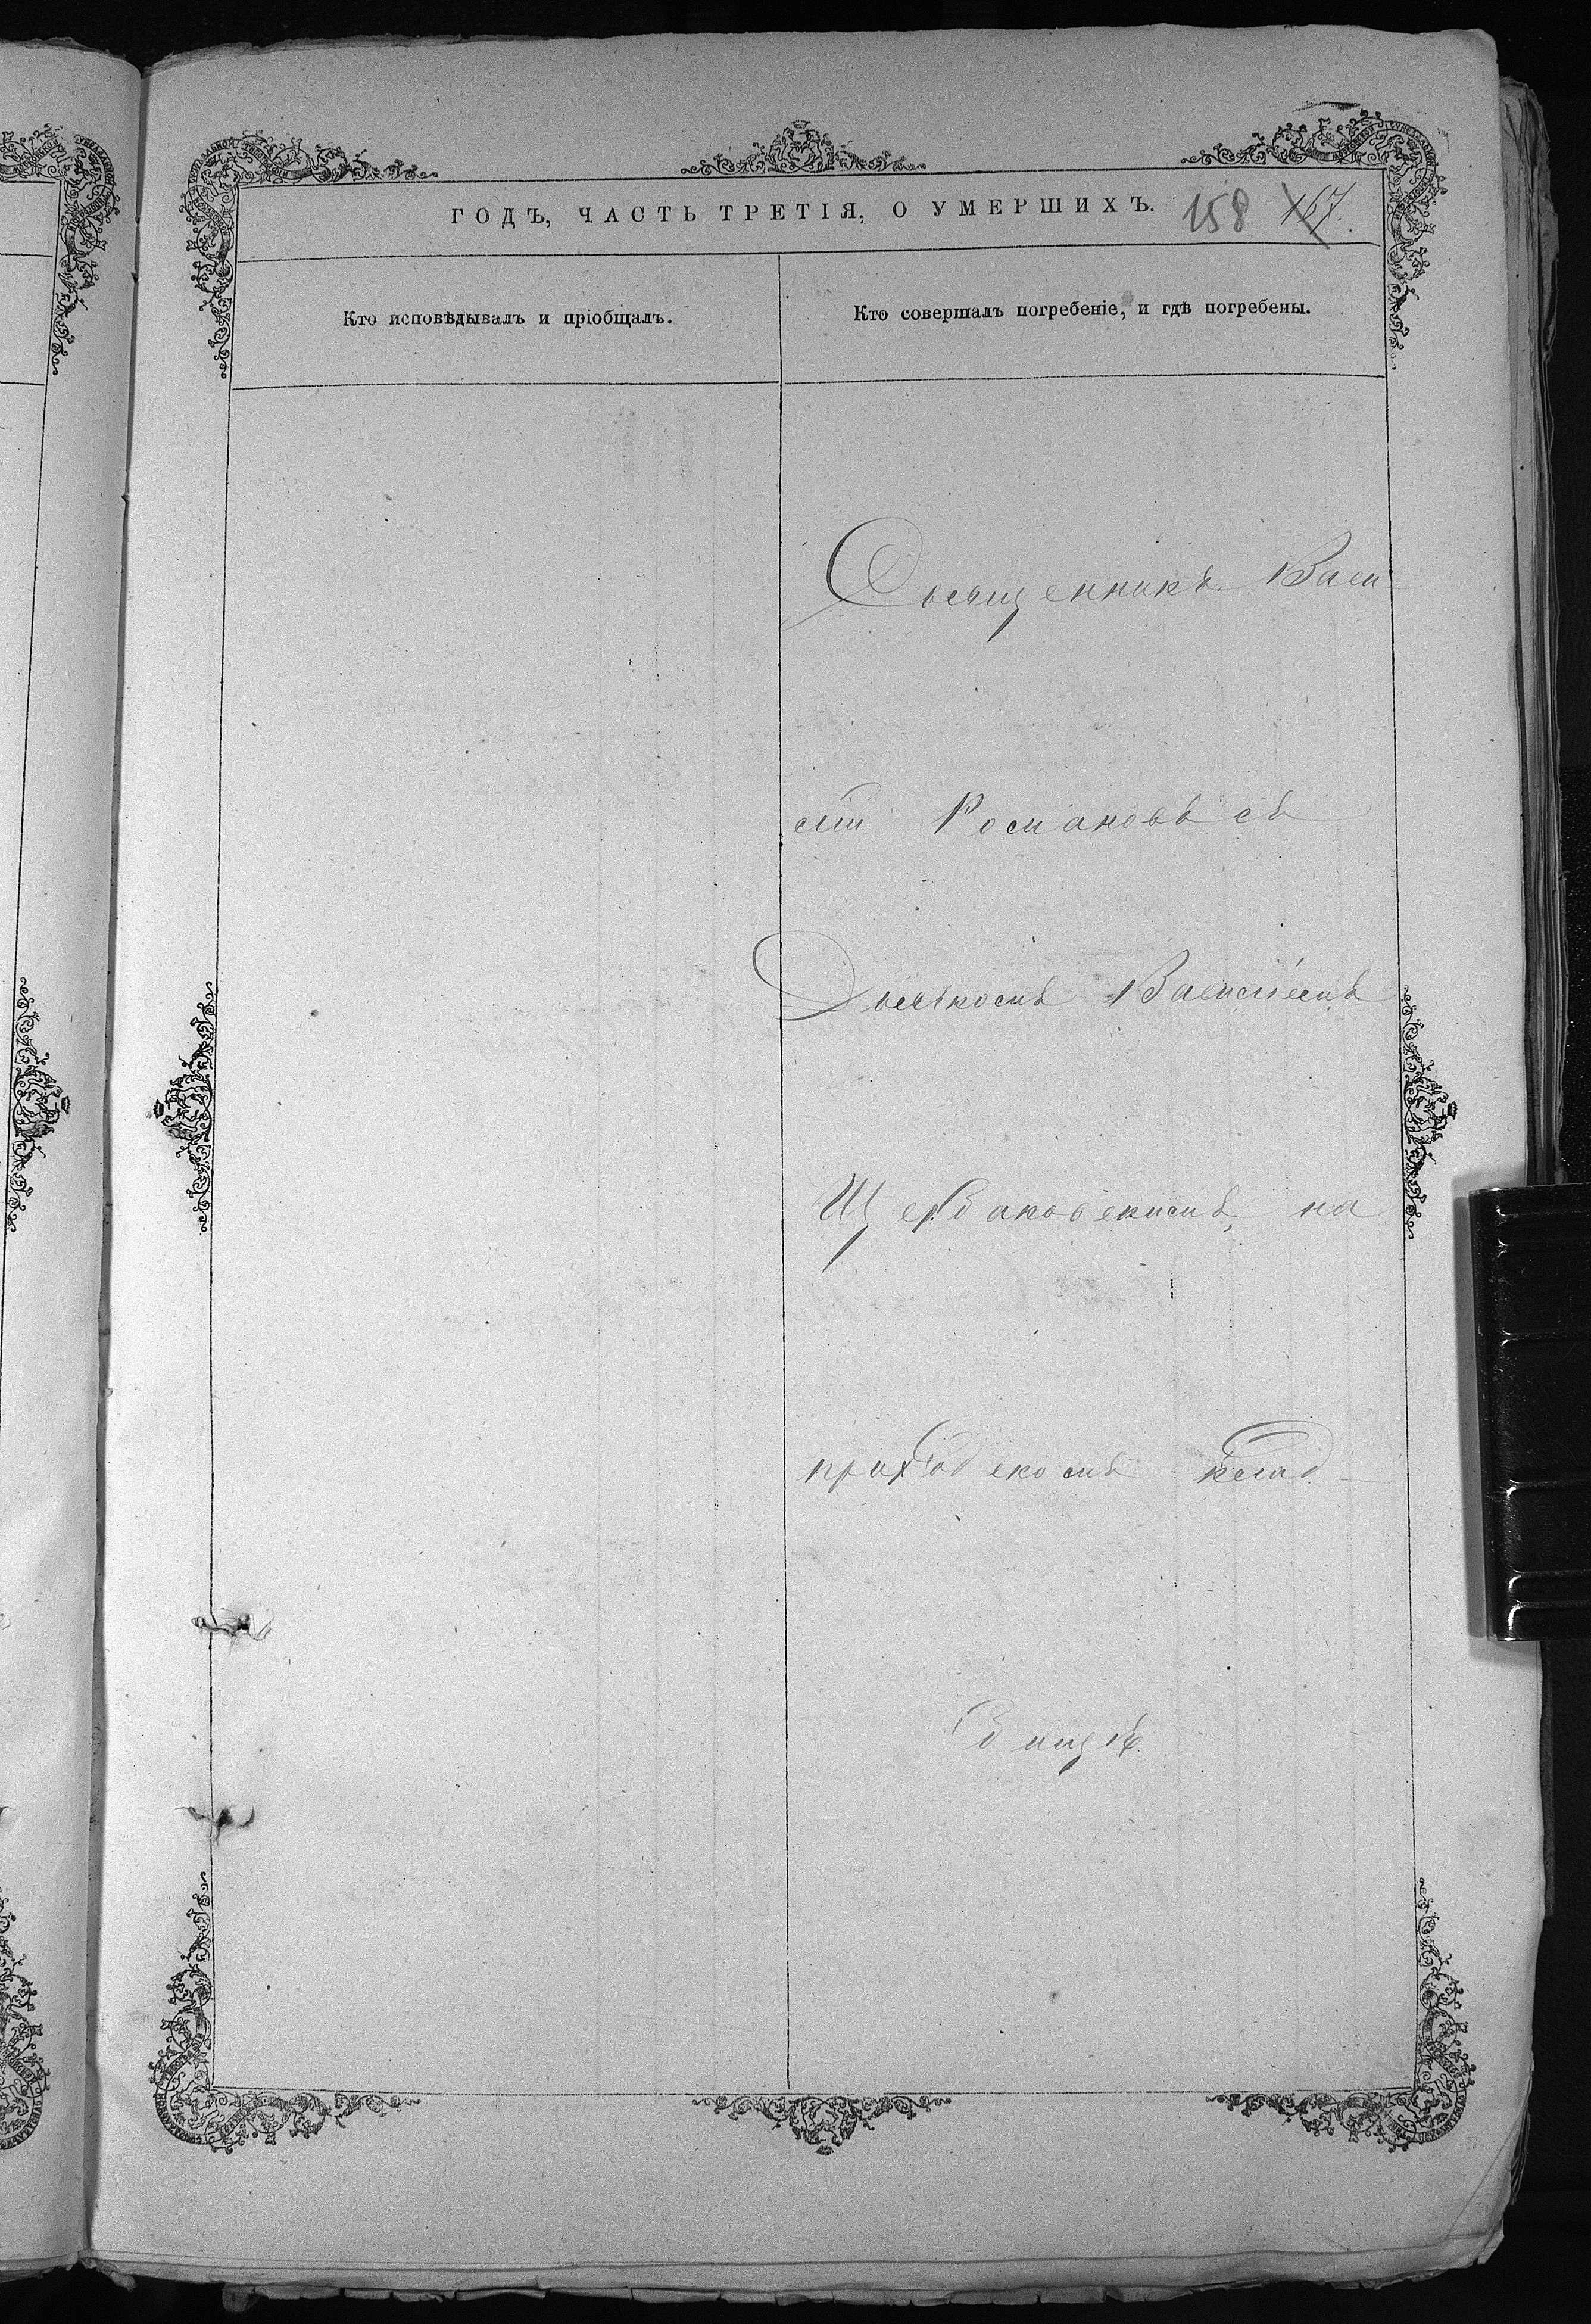 ГОДЪ, ЧАСТЬ ТРЕТІЯ, О УМЕРШИХЪ. 158 167.
Кто исповѣдывалъ и пріобщалъ.
Кто совершалъ погребеніе, и гдѣ погребены.
Священникъ Васи
лій Романовъ съ
Дьячкомъ Василіемъ
Щербаковскимъ, на
приходскомъ клад-
бищѣ.